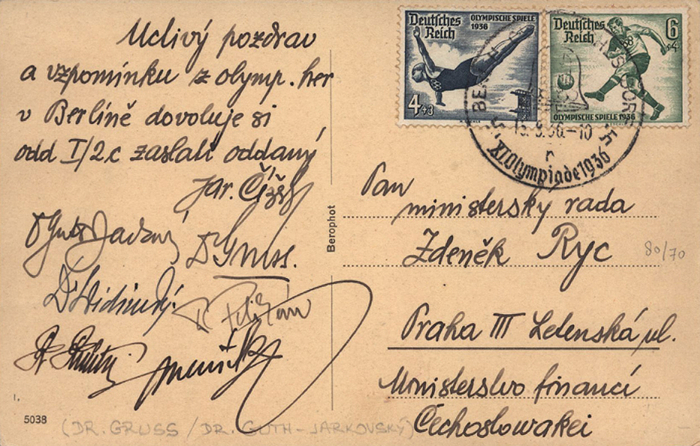 Uctivý pozdrav
a vzpomínku z olymp. her
v Berlíně dovoluje si
odd I/2c zaslati oddaný
Jar.
Dr Gruss.
5038
(DR. GRUSS / DR. GUTH-JARKOVSKÝ)
Berophot
Deutsches Reich
OLYMPISCHE SPIELE 1936
4+3
Deutsches Reich
6+4
OLYMPISCHE SPIELE 1936
XI Olympiade 1936
Pan
ministerský rada
Zdeněk Ryc
80/70
Praha III Letenská ul.
Ministerstvo financí
Čechoslowakei